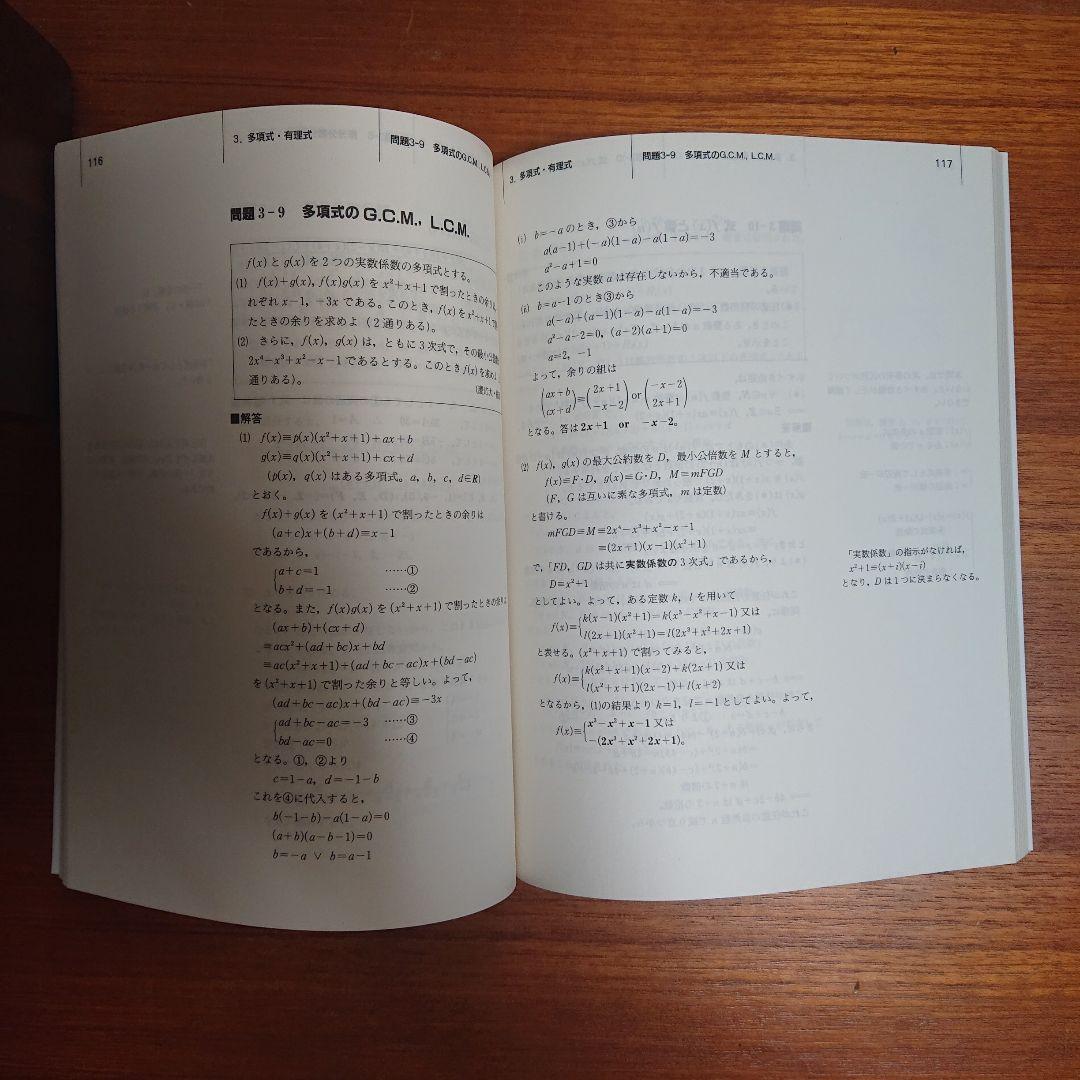 116
3. 多項式・有理式
問題3-9 多項式のG.C.M., L.C.M.
問題 3-9 多項式の G.C.M., L.C.M.
f(x) と g(x) を2つの実数係数の多項式とする。
(1) f(x)+g(x), f(x)g(x) を x²+x+1 で割ったときの余りは,
れぞれ x-1, -3x である。このとき, f(x) を x²+x+1 で
たときの余りを求めよ(2通りある)。
(2) さらに, f(x), g(x) は, ともに3次式で, その最小公倍
2x⁴-x³+x²-x-1 であるとする。このとき f(x) を求め
通りある)。
■解答
(1) f(x)≡p(x)(x²+x+1)+ax+b
g(x)≡q(x)(x²+x+1)+cx+d
(p(x), q(x) はある多項式。a, b, c, d∈R)
とおく。
f(x)+g(x) を (x²+x+1) で割ったときの余りは
(a+c)x+(b+d)≡x-1
であるから,
a+c=1 ……①
b+d=-1 ……②
となる。また, f(x)g(x) を (x²+x+1) で割ったときの余りは
(ax+b)+(cx+d)
≡acx²+(ad+bc)x+bd
≡ac(x²+x+1)+(ad+bc-ac)x+(bd-ac)
を (x²+x+1) で割った余りと等しい。よって,
(ad+bc-ac)x+(bd-ac)≡-3x
ad+bc-ac=-3 ……③
bd-ac=0 ……④
となる。①, ②より
c=1-a, d=-1-b
これを④に代入すると,
b(-1-b)-a(1-a)=0
(a+b)(a-b-1)=0
b=-a ∨ b=a-1
3. 多項式・有理式
問題3-9 多項式のG.C.M., L.C.M.
117
(i) b=-a のとき, ③から
a(a-1)+(-a)(1-a)-a(1-a)=-3
a²-a+1=0
このような実数 a は存在しないから, 不適当である。
(ii) b=a-1 のとき③から
a(-a)+(a-1)(1-a)-a(1-a)=-3
a²-a-2=0, (a-2)(a+1)=0
a=2, -1
よって, 余りの組は
(ax+b cx+d)≡(2x+1 -x-2) or (-x-2 2x+1)
となる。答は 2x+1 or -x-2。
(2) f(x), g(x) の最大公約数を D, 最小公倍数を M とすると,
f(x)≡F・D, g(x)≡G・D, M≡mFGD
(F, G は互いに素な多項式, m は定数)
と書ける。
mFGD≡M≡2x⁴-x³+x²-x-1
≡(2x+1)(x-1)(x²+1)
で,「FD, GD は共に実数係数の3次式」であるから,
D=x²+1
としてよい。よって, ある定数 k, l を用いて
f(x)≡k(x-1)(x²+1)≡k(x³-x²+x-1) 又は
l(2x+1)(x²+1)≡l(2x³+x²+2x+1)
と表せる。(x²+x+1) で割ってみると,
f(x)≡k(x²+x+1)(x-2)+k(2x+1) 又は
l(x²+x+1)(2x-1)+l(x+2)
となるから, (1)の結果より k=1, l=-1 としてよい。よって,
f(x)≡x³-x²+x-1 又は
-(2x³+x²+2x+1)。
「実数係数」の指示がなければ,
x²+1≡(x+i)(x-i)
となり, D は1つに決まらなくなる。